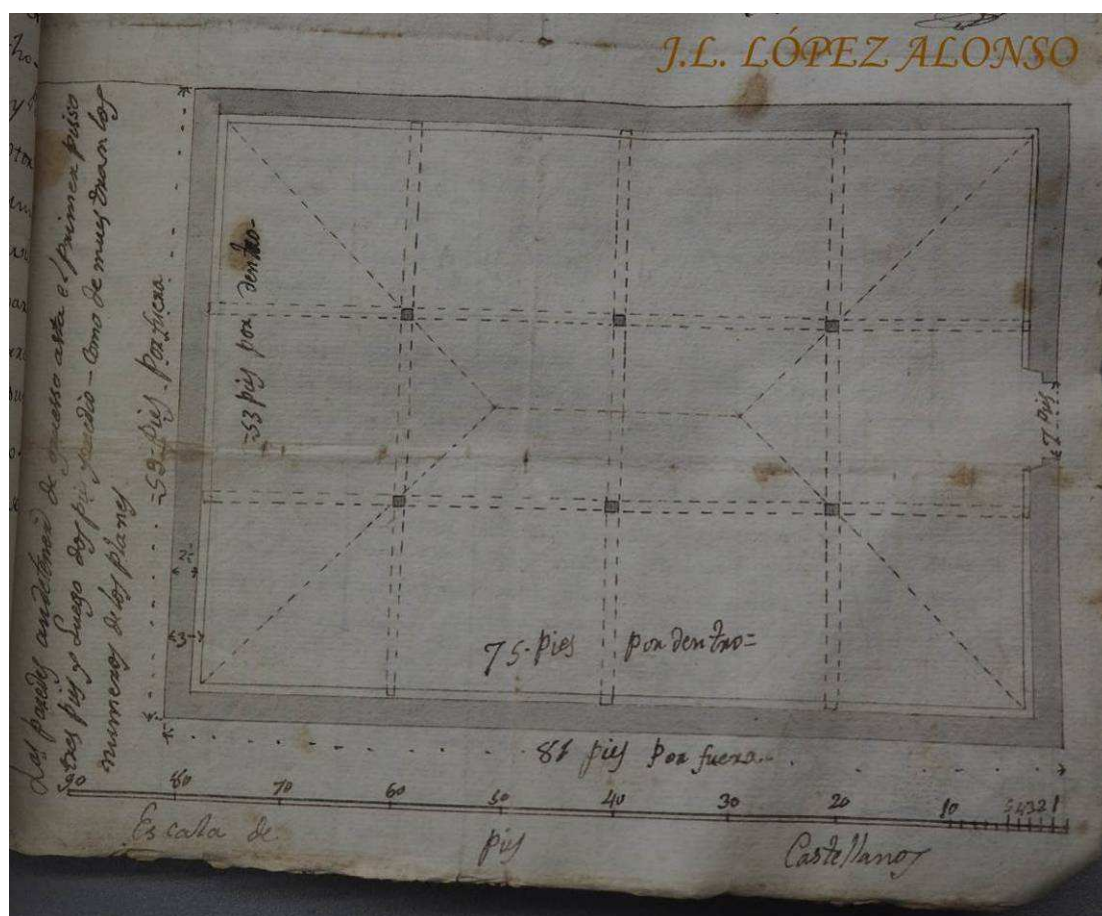 J.L. LÓPEZ ALONSO
Las paredes an de tener de grueso asta el primer pisso
tres pies y Luego dos pies y medio – Como demuestran los
numeros de los planes
=59= pies Por fuera
=53 pies por dentro=
7 pies
2½
3
75 = Pies por dentro=
81 pies Por fuera
90 80 70 60 50 40 30 20 10 5 4 3 2 1
Escala de pies Castellanos